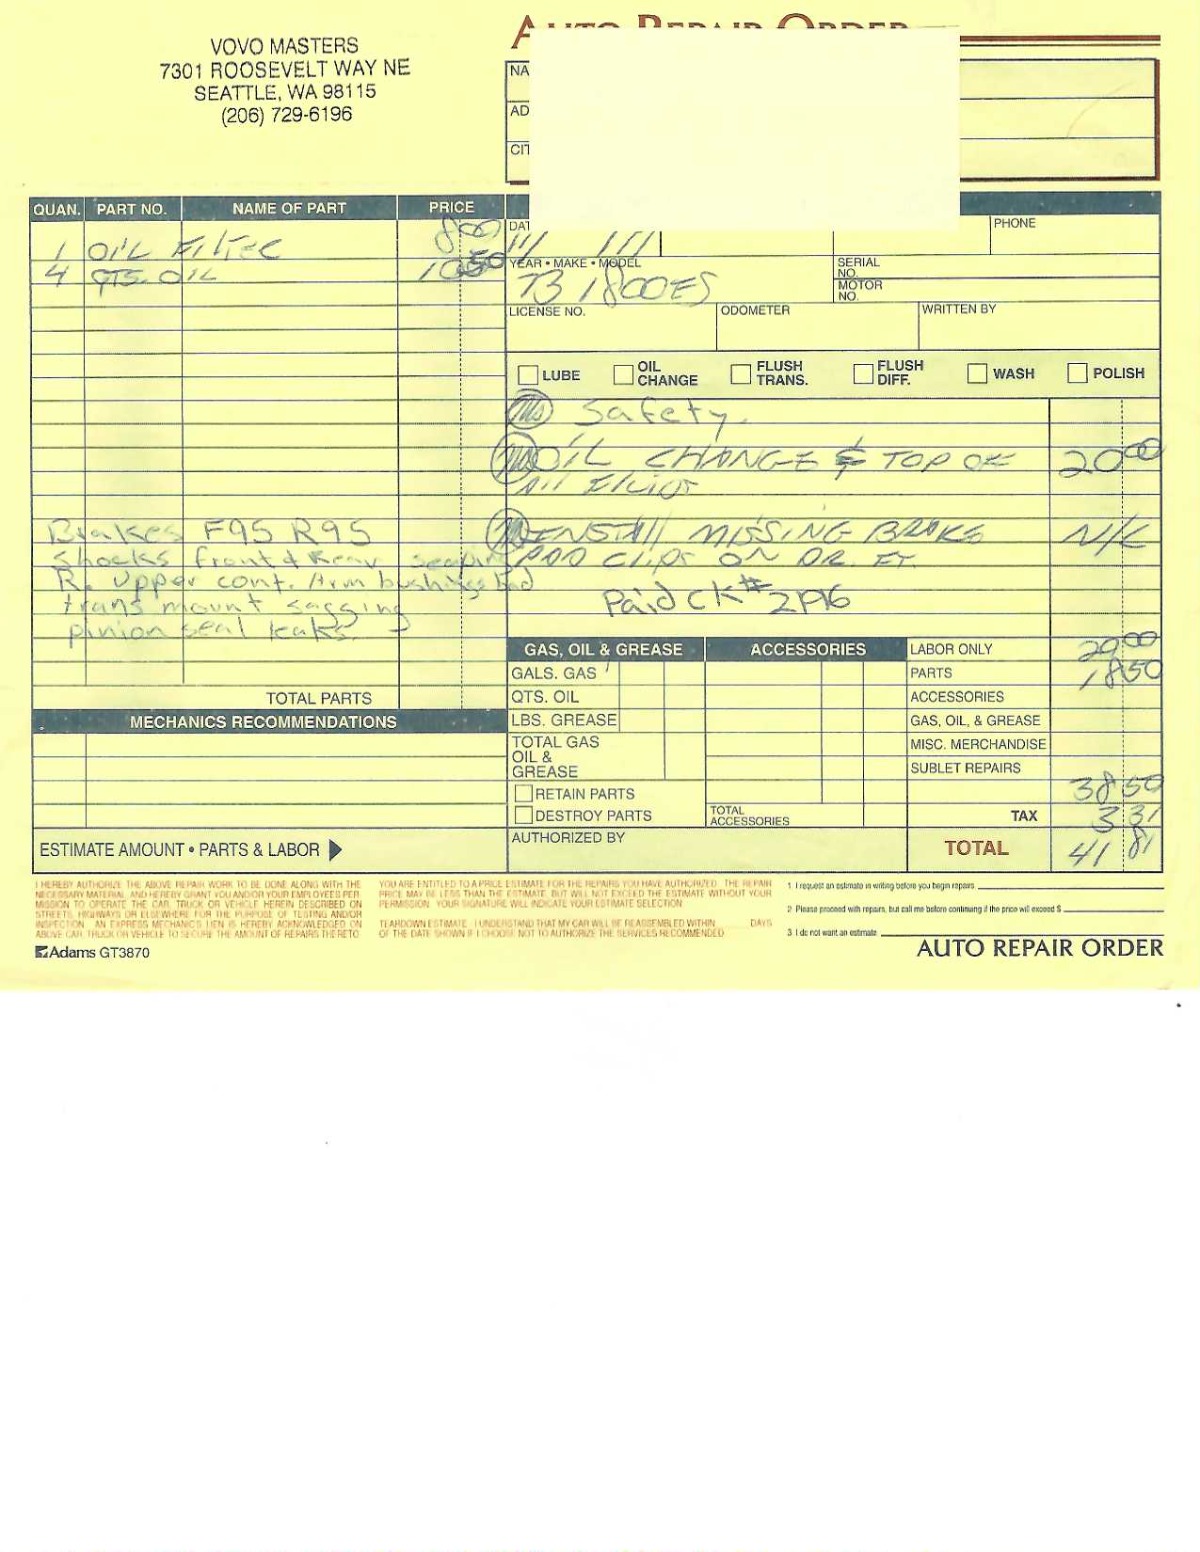 VOVO MASTERS
7301 ROOSEVELT WAY NE
SEATTLE, WA 98115
(206) 729-6196
AUTO REPAIR ORDER
NA
AD
CIT
QUAN. PART NO. NAME OF PART PRICE
1 OIL FILTER 8 00
4 QTS. OIL 10 50
DAT
PHONE
YEAR • MAKE • MODEL
73 1800ES
SERIAL NO.
MOTOR NO.
LICENSE NO. ODOMETER WRITTEN BY
LUBE OIL CHANGE FLUSH TRANS. FLUSH DIFF. WASH POLISH
Safety.
OIL CHANGE & TOP OFF 20 00
All Fluids
INSTALL MISSING BRAKE N/C
PAD CLIPS ON DR. FT.
Paid CK#
Brakes F95 R95
Shocks front & Rear seaping
R. upper cont. Arm bushings bad
trans mount sagging
pinion seal leaks.
TOTAL PARTS
MECHANICS RECOMMENDATIONS
ESTIMATE AMOUNT • PARTS & LABOR
GAS, OIL & GREASE ACCESSORIES
GALS. GAS
QTS. OIL
LBS. GREASE
TOTAL GAS OIL & GREASE
RETAIN PARTS
DESTROY PARTS
TOTAL ACCESSORIES
AUTHORIZED BY
LABOR ONLY 20 00
PARTS 18 50
ACCESSORIES
GAS, OIL, & GREASE
MISC. MERCHANDISE
SUBLET REPAIRS
38 50
TAX 3 31
TOTAL 41 81
I HEREBY AUTHORIZE THE ABOVE REPAIR WORK TO BE DONE ALONG WITH THE
NECESSARY MATERIAL, AND HEREBY GRANT YOU AND/OR YOUR EMPLOYEES PER-
MISSION TO OPERATE THE CAR, TRUCK OR VEHICLE HEREIN DESCRIBED ON
STREETS, HIGHWAYS OR ELSEWHERE FOR THE PURPOSE OF TESTING AND/OR
INSPECTION. AN EXPRESS MECHANICS LIEN IS HEREBY ACKNOWLEDGED ON
ABOVE CAR, TRUCK OR VEHICLE TO SECURE THE AMOUNT OF REPAIRS THERETO.
YOU ARE ENTITLED TO A PRICE ESTIMATE FOR THE REPAIRS YOU HAVE AUTHORIZED. THE REPAIR
PRICE MAY BE LESS THAN THE ESTIMATE, BUT WILL NOT EXCEED THE ESTIMATE WITHOUT YOUR
PERMISSION. YOUR SIGNATURE WILL INDICATE YOUR ESTIMATE SELECTION
TEARDOWN ESTIMATE. I UNDERSTAND THAT MY CAR WILL BE REASSEMBLED WITHIN DAYS
OF THE DATE SHOWN IF I CHOOSE NOT TO AUTHORIZE THE SERVICES RECOMMENDED.
1. I request an estimate in writing before you begin repairs.
2. Please proceed with repairs, but call me before continuing if the price will exceed $
3. I do not want an estimate
Adams GT3870
AUTO REPAIR ORDER